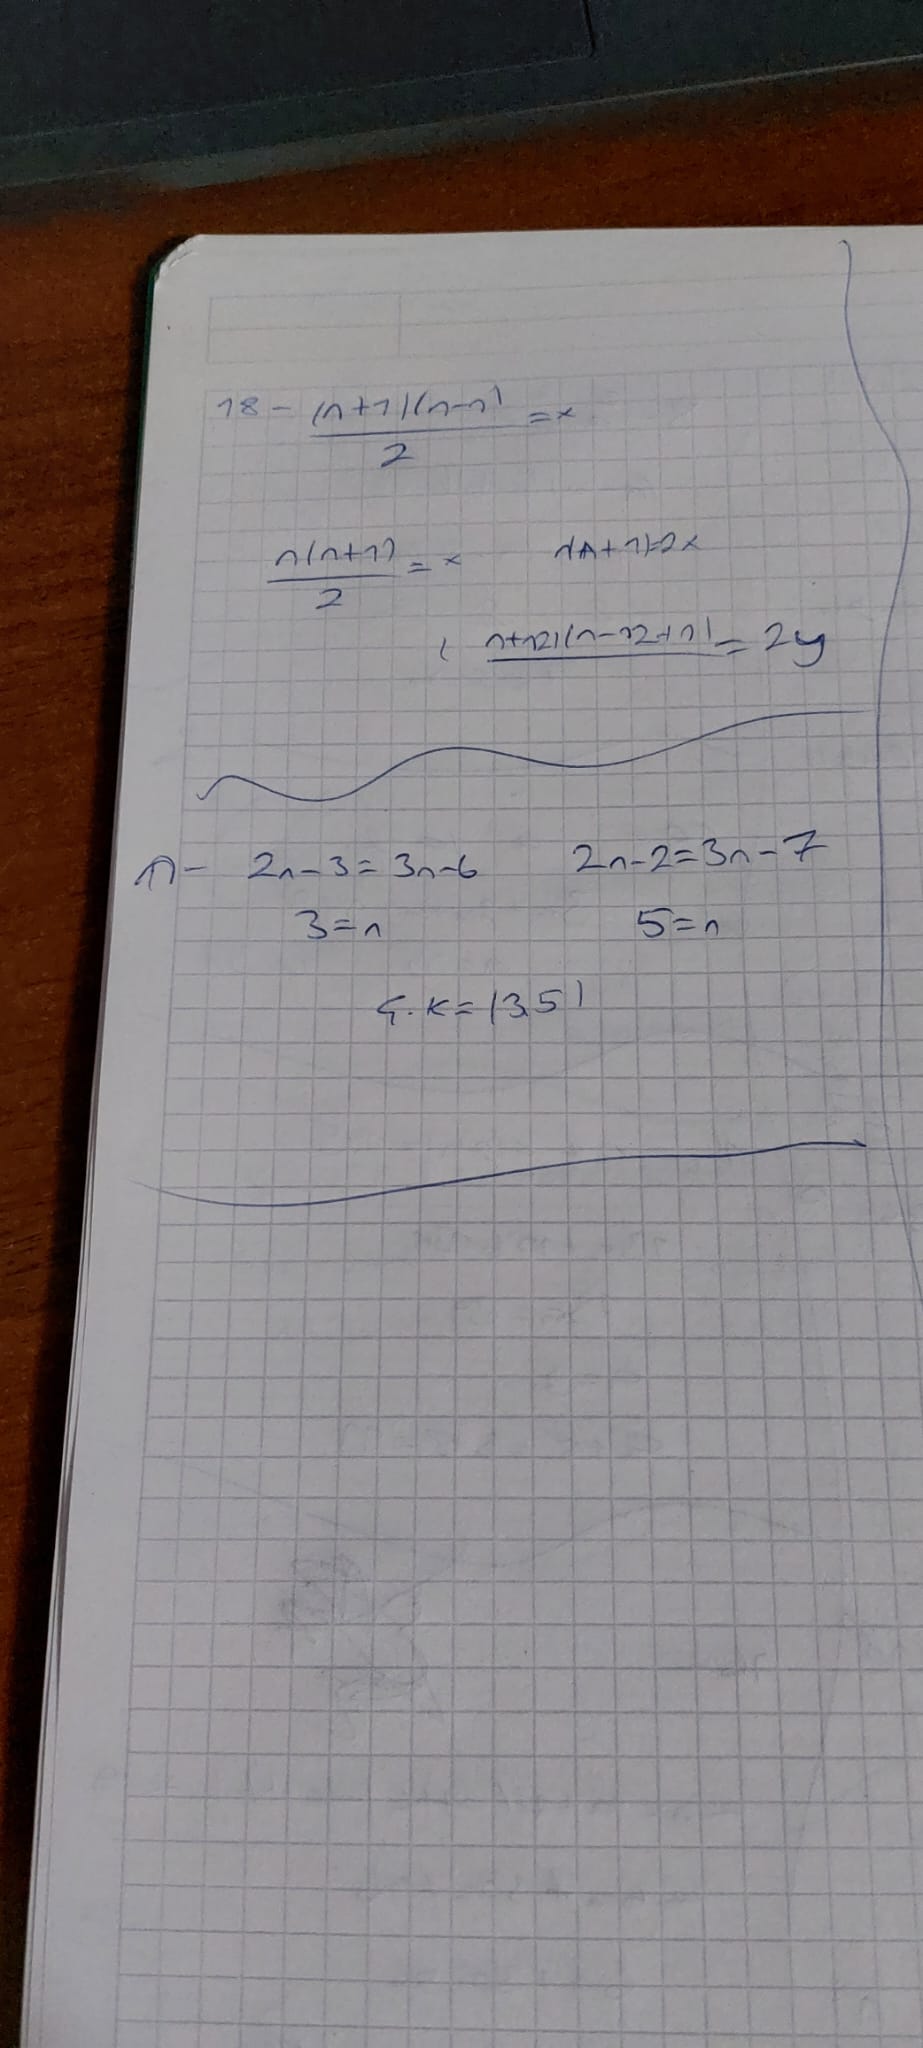 18- (n+1)(n-n)
2
=x
n(n+1)
2
=x
n(n+1)=2x
(n+12)(n-12+1) = 2y
2n-3=3n-6 2n-2=3n-7
3=n 5=n
Ç.K=(3,5)